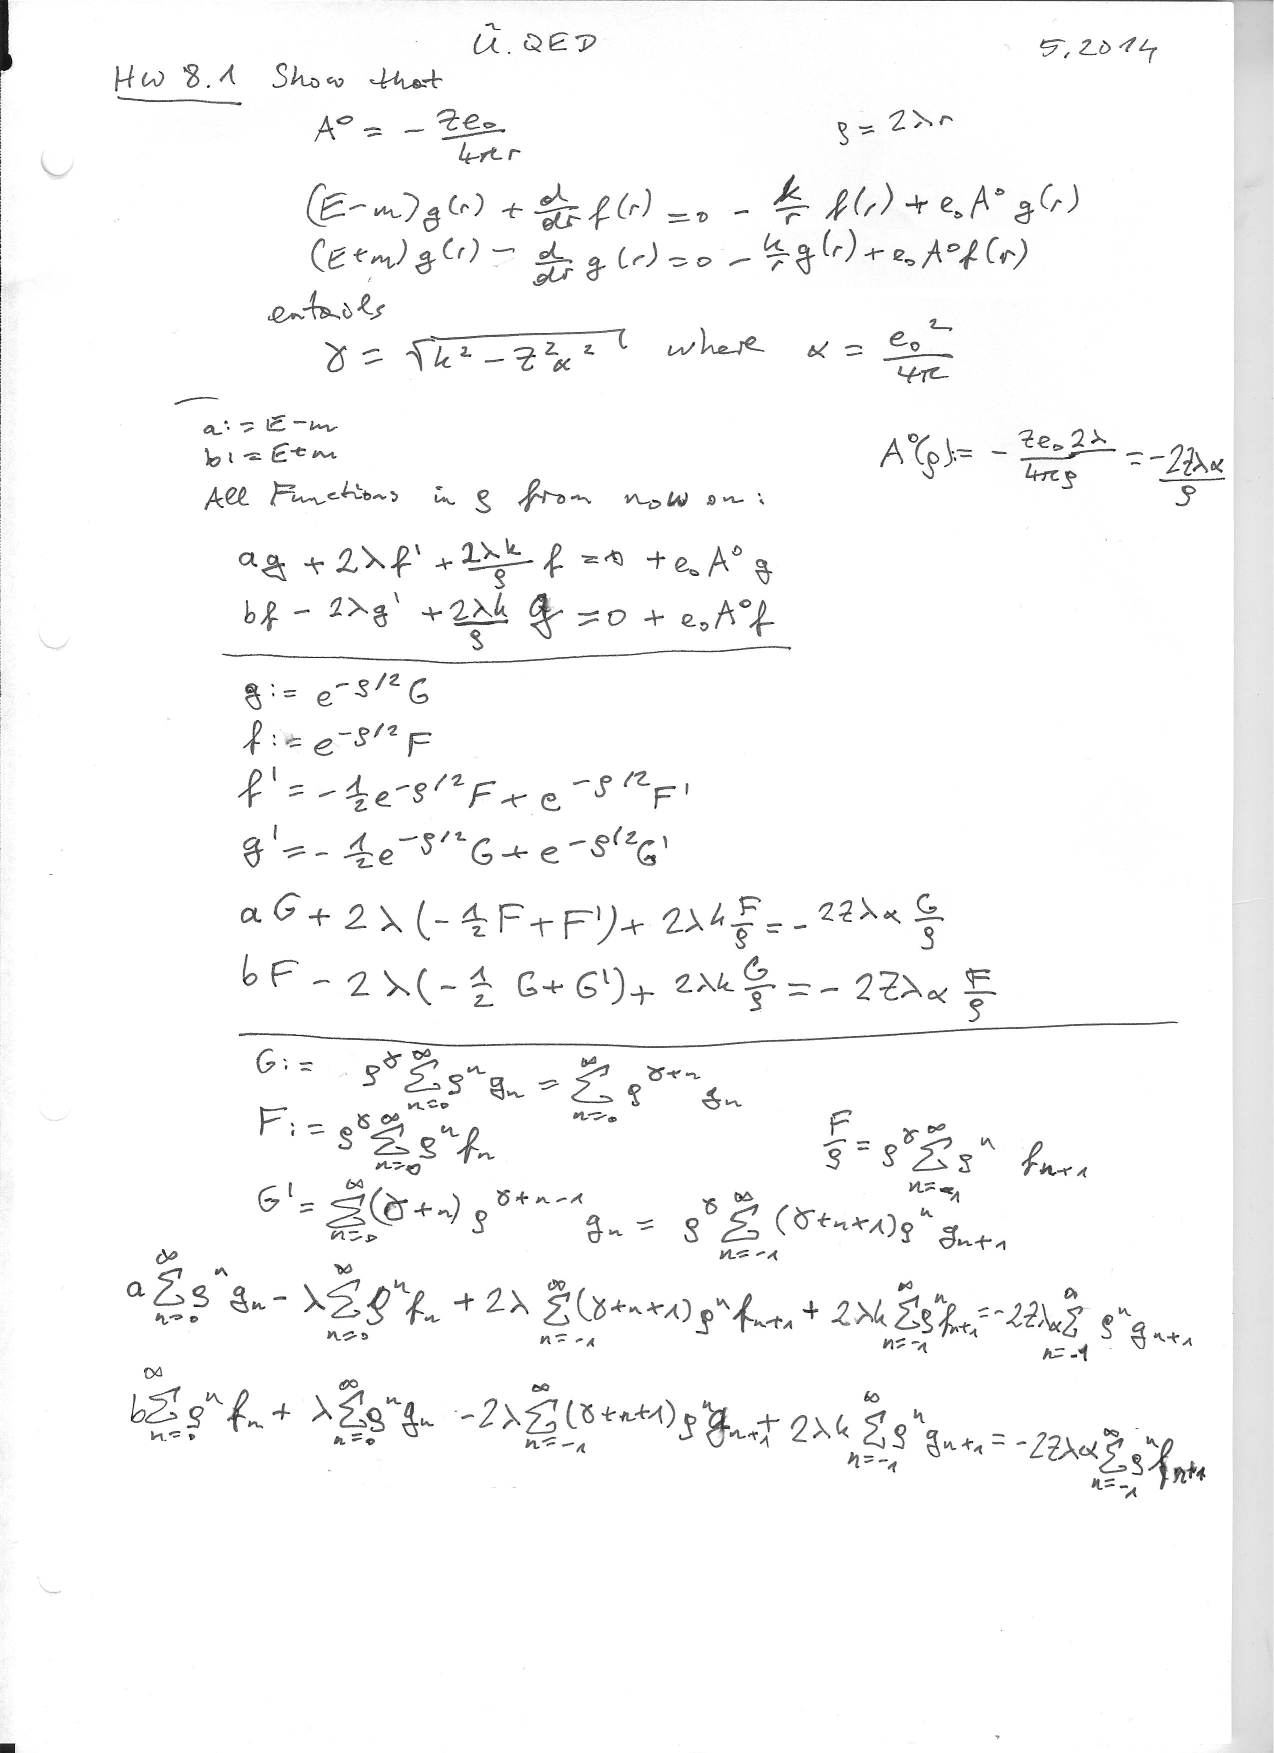 Ü. QED 5.2014
HW 8.1 Show that
A⁰ = - Ze₀/4πr ρ = 2λr
(E-m)g(r) + d/dr f(r) = 0 - k/r f(r) + e₀A⁰g(r)
(E+m)g(r) - d/dr g(r) = 0 - k/r g(r) + e₀A⁰f(r)
entails
γ = √(k² - Z²α²) where α = e₀²/4π
a := E-m
b := E+m A⁰(ρ) := - Ze₀2λ/4πρ = - 2Zλα/ρ
All Functions in ρ from now on:
ag + 2λf' + 2λk/ρ f = 0 + e₀A⁰g
bf - 2λg' + 2λk/ρ g = 0 + e₀A⁰f
g := e^(-ρ/2) G
f := e^(-ρ/2) F
f' = - 1/2 e^(-ρ/2) F + e^(-ρ/2) F'
g' = - 1/2 e^(-ρ/2) G + e^(-ρ/2) G'
aG + 2λ(- 1/2 F + F') + 2λk F/ρ = - 2Zλα G/ρ
bF - 2λ(- 1/2 G + G') + 2λk G/ρ = - 2Zλα F/ρ
G := ρ^γ Σ_{n=0}^∞ ρ^n g_n = Σ_{n=0}^∞ ρ^(γ+n) g_n
F := ρ^γ Σ_{n=0}^∞ ρ^n f_n F/ρ = ρ^γ Σ_{n=-1}^∞ ρ^n f_{n+1}
G' = Σ_{n=0}^∞ (γ+n) ρ^(γ+n-1) g_n = ρ^γ Σ_{n=-1}^∞ (γ+n+1) ρ^n g_{n+1}
a Σ_{n=0}^∞ ρ^n g_n - λ Σ_{n=0}^∞ ρ^n f_n + 2λ Σ_{n=-1}^∞ (γ+n+1) ρ^n f_{n+1} + 2λk Σ_{n=-1}^∞ ρ^n f_{n+1} = -2Zλα Σ_{n=-1}^∞ ρ^n g_{n+1}
b Σ_{n=0}^∞ ρ^n f_n + λ Σ_{n=0}^∞ ρ^n g_n - 2λ Σ_{n=-1}^∞ (γ+n+1) ρ^n g_{n+1} + 2λk Σ_{n=-1}^∞ ρ^n g_{n+1} = -2Zλα Σ_{n=-1}^∞ ρ^n f_{n+1}